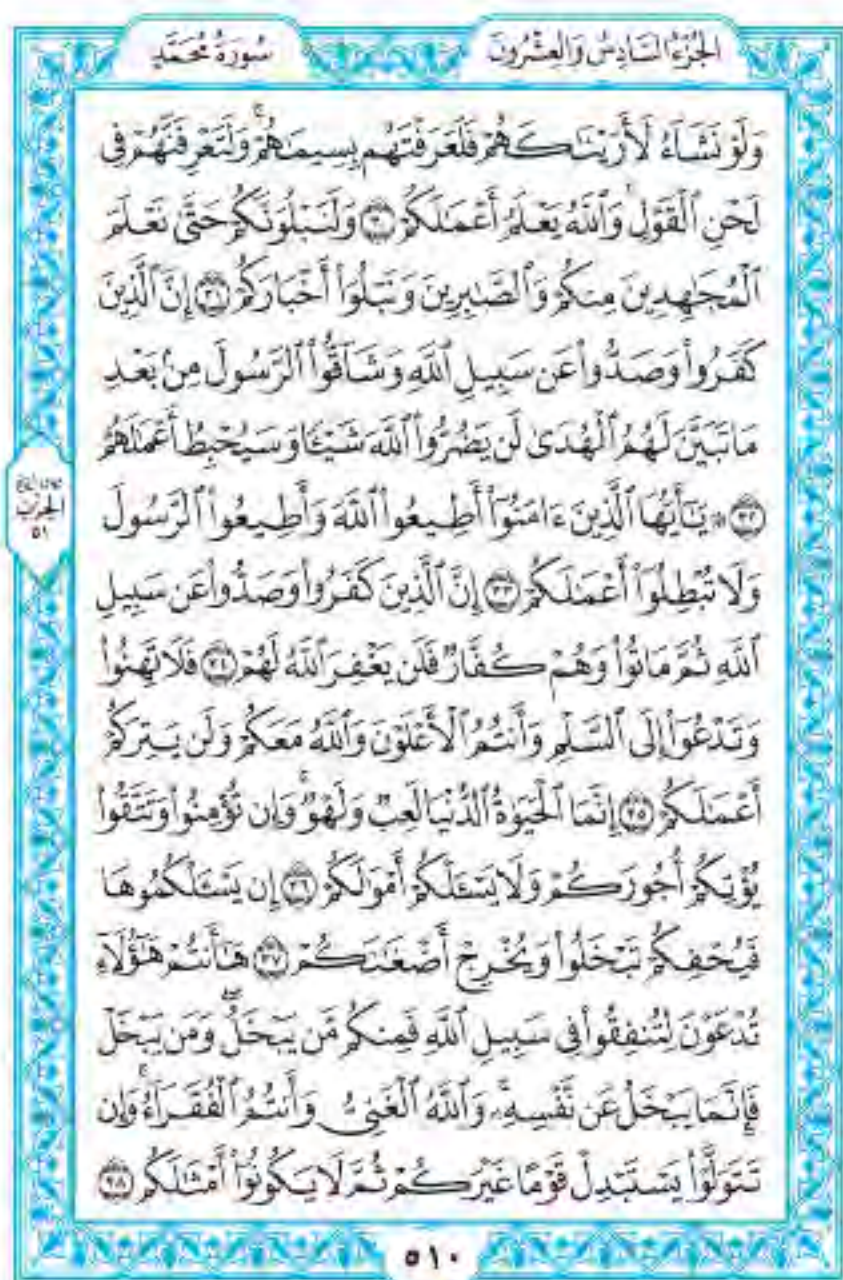 الجُزْءُ السَّادِسُ وَالعِشْرُونَ
سُورَةُ مُحَمَّدٍ
وَلَوْ نَشَآءُ لَأَرَيْنَٰكَهُمْ فَلَعَرَفْتَهُم بِسِيمَٰهُمْۚ وَلَتَعْرِفَنَّهُمْ فِي
لَحْنِ ٱلْقَوْلِۚ وَٱللَّهُ يَعْلَمُ أَعْمَٰلَكُمْ ۝٣٠ وَلَنَبْلُوَنَّكُمْ حَتَّىٰ نَعْلَمَ
ٱلْمُجَٰهِدِينَ مِنكُمْ وَٱلصَّٰبِرِينَ وَنَبْلُوَا۟ أَخْبَارَكُمْ ۝٣١ إِنَّ ٱلَّذِينَ
كَفَرُوا۟ وَصَدُّوا۟ عَن سَبِيلِ ٱللَّهِ وَشَآقُّوا۟ ٱلرَّسُولَ مِنۢ بَعْدِ
مَا تَبَيَّنَ لَهُمُ ٱلْهُدَىٰ لَن يَضُرُّوا۟ ٱللَّهَ شَيْـًٔا وَسَيُحْبِطُ أَعْمَٰلَهُمْ
۝٣٢ ۞ يَٰٓأَيُّهَا ٱلَّذِينَ ءَامَنُوٓا۟ أَطِيعُوا۟ ٱللَّهَ وَأَطِيعُوا۟ ٱلرَّسُولَ
وَلَا تُبْطِلُوٓا۟ أَعْمَٰلَكُمْ ۝٣٣ إِنَّ ٱلَّذِينَ كَفَرُوا۟ وَصَدُّوا۟ عَن سَبِيلِ
ٱللَّهِ ثُمَّ مَاتُوا۟ وَهُمْ كُفَّارٌ فَلَن يَغْفِرَ ٱللَّهُ لَهُمْ ۝٣٤ فَلَا تَهِنُوا۟
وَتَدْعُوٓا۟ إِلَى ٱلسَّلْمِ وَأَنتُمُ ٱلْأَعْلَوْنَ وَٱللَّهُ مَعَكُمْ وَلَن يَتِرَكُمْ
أَعْمَٰلَكُمْ ۝٣٥ إِنَّمَا ٱلْحَيَوٰةُ ٱلدُّنْيَا لَعِبٌ وَلَهْوٌۚ وَإِن تُؤْمِنُوا۟ وَتَتَّقُوا۟
يُؤْتِكُمْ أُجُورَكُمْ وَلَا يَسْـَٔلْكُمْ أَمْوَٰلَكُمْ ۝٣٦ إِن يَسْـَٔلْكُمُوهَا
فَيُحْفِكُمْ تَبْخَلُوا۟ وَيُخْرِجْ أَضْغَٰنَكُمْ ۝٣٧ هَٰٓأَنتُمْ هَٰٓؤُلَآءِ
تُدْعَوْنَ لِتُنفِقُوا۟ فِي سَبِيلِ ٱللَّهِ فَمِنكُم مَّن يَبْخَلُۖ وَمَن يَبْخَلْ
فَإِنَّمَا يَبْخَلُ عَن نَّفْسِهِۦۚ وَٱللَّهُ ٱلْغَنِيُّ وَأَنتُمُ ٱلْفُقَرَآءُۚ وَإِن
تَتَوَلَّوْا۟ يَسْتَبْدِلْ قَوْمًا غَيْرَكُمْ ثُمَّ لَا يَكُونُوٓا۟ أَمْثَٰلَكُم ۝٣٨
الحِزْب
٥١
٥١٠